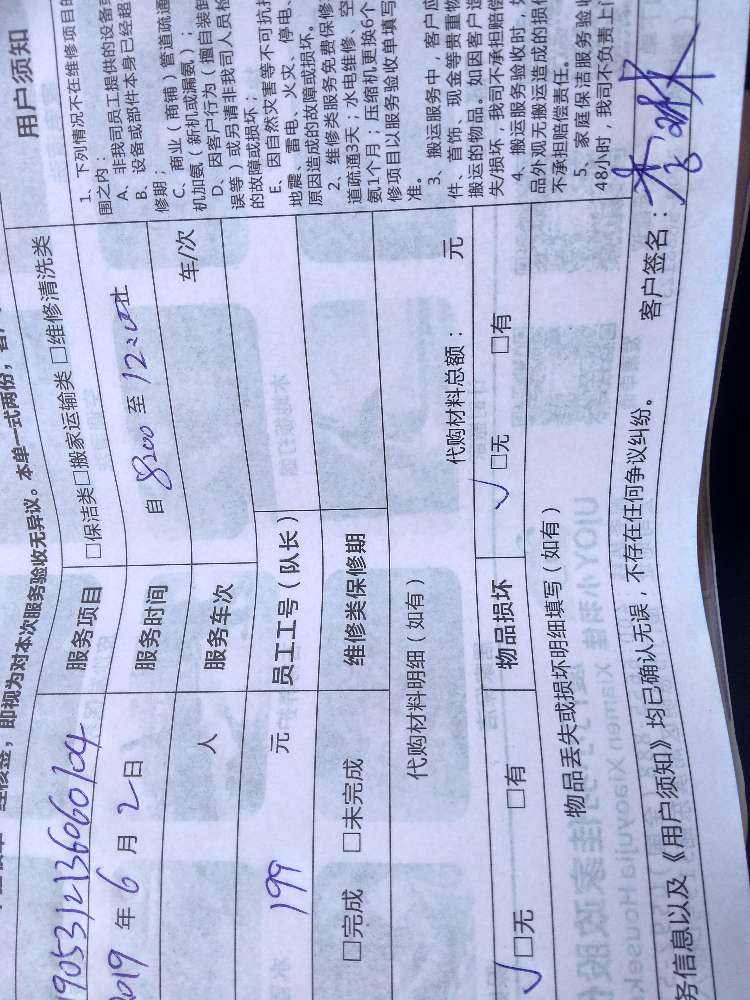 即视为对本次服务验收无异议。本单一式两份，
1905312136060104
服务项目
□保洁类□搬家运输类 □维修清洗类
2019 年 6 月 2 日
服务时间
自 8:00 至 12:00止
人
服务车次
车/次
199 元
员工工号（队长）
□完成 □未完成
维修类保修期
代购材料明细（如有）
代购材料总额： 元
√□无 □有
物品损坏
√□无 □有
物品丢失或损坏明细填写（如有）
务信息以及《用户须知》均已确认无误，不存在任何争议纠纷。
客户签名：
用户须知
1、下列情况不在维修项目的
围之内：
A、非我司员工提供的设备或
B、设备或部件本身已经超
修期；
C、商业（商铺）管道疏通
机加氨（新机或漏氨）；
D、因客户行为（擅自装卸
误等）或另请非我司人员检
的故障或损坏；
E、因自然灾害等不可抗拒
地震、雷电、火灾、停电、
原因造成的故障或损坏。
2、维修类服务免费保修
道疏通3天；水电维修、空
氨1个月；压缩机更换6个
修项目以服务验收单填写
准。
3、搬运服务中，客户应
件、首饰、现金等贵重物
搬运的物品。如因客户造
失/损坏，我司不承担赔偿
4、搬运服务验收时，如
品外观无搬运造成的损
不承担赔偿责任。
5、家庭保洁服务验收
48小时，我司不负责上门